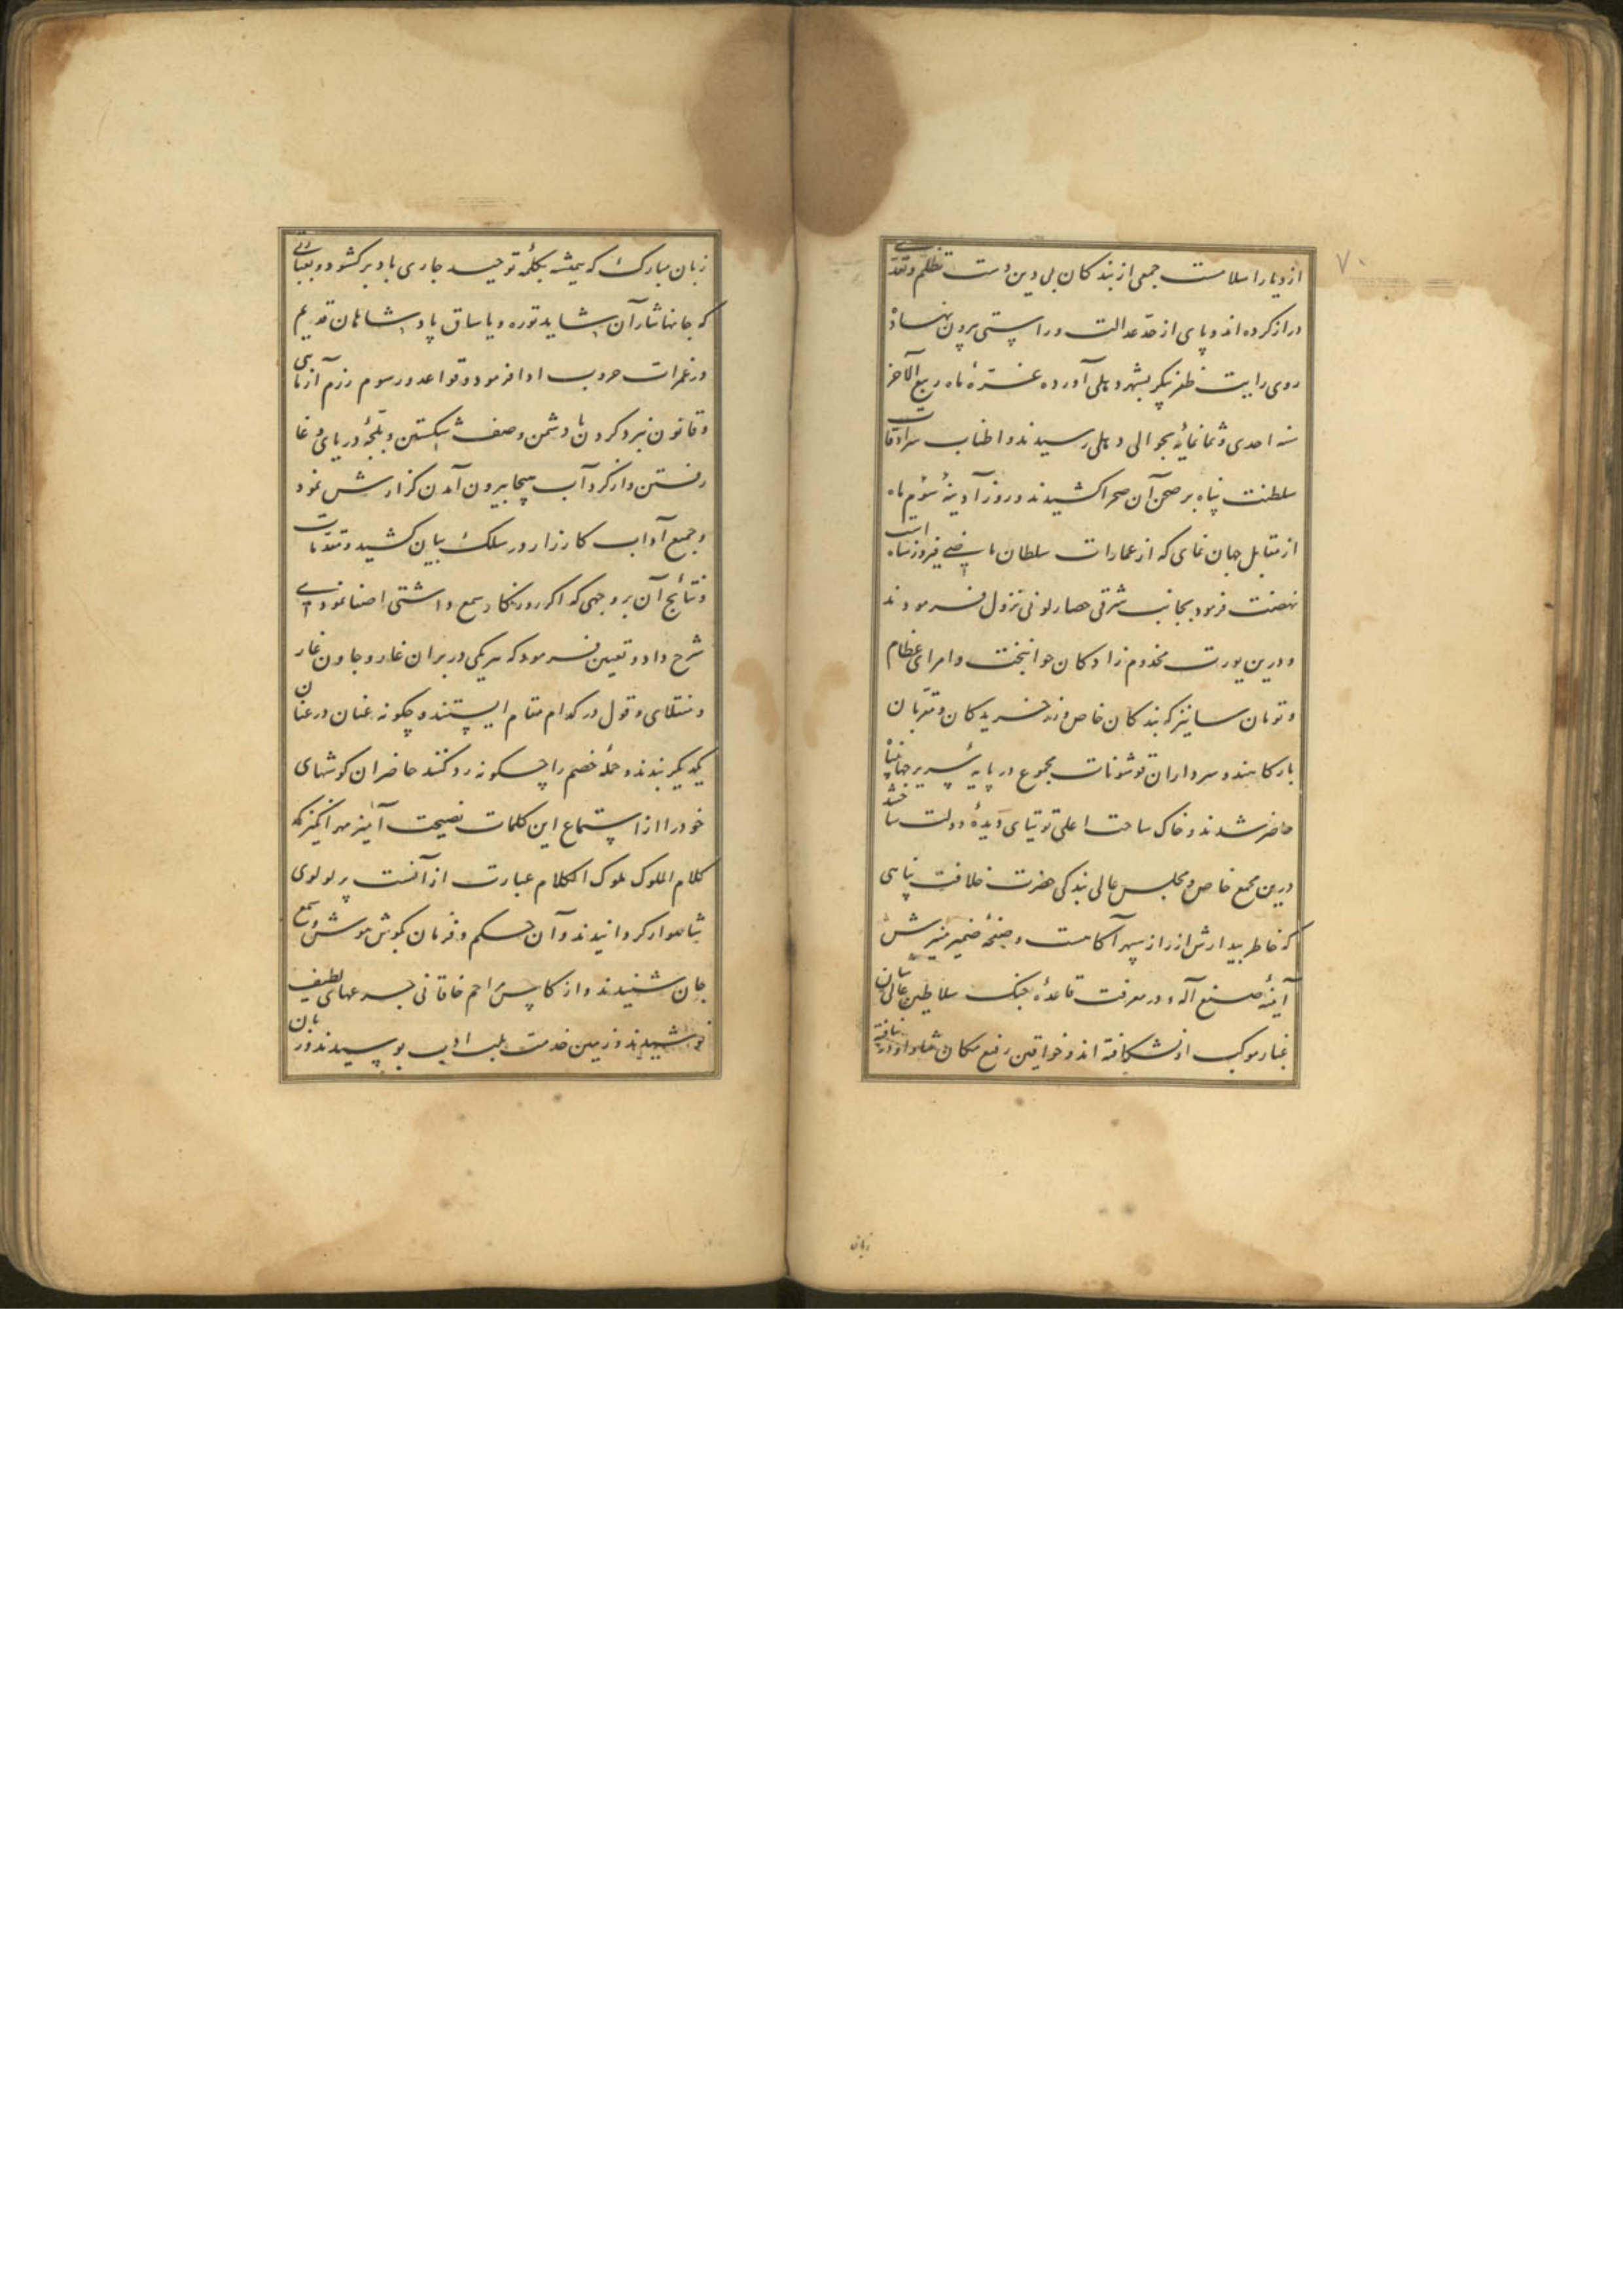 ۷۰
از دیار اسلامست جمعی از بندکان بی دین دست تظلم و تعدی
دراز کرده اند و پای از حدّ عدالت و راستی برون نهاده
روی رایت ظفر پیکر بشهر دهلی آورده غرّهٔ ماه ربیع الآخر
سنه احدی و ثمانمائه بحوالی دهلی رسیدند و اطناب سرادقات
سلطنت پناه بر صحن آن صحرا کشیدند و روز آدینهٔ سوّم ماه
از مقابل جهان نمای که از عمارات سلطان ماضی فیروزشاه است
نهضت فرمود بجانب شرقی حصار لونی نزول فرمودند
و درین یورت مخدوم زادکان جوانبخت و امرای عظام
و نویان که بندکان خاص و زرخریدکان و مقربان
بارکاهند و سرداران قوشونات مجموع در پایهٔ سریر جهانپناه
حاضر شدند و خاک ساحت اعلی توتیای دیدهٔ دولت ساخته
درین مجمع خاص و مجلس عالی بندکی حضرت خلافت پناهی
که خاطر بیدارش از راز سپهر آکاهست و صفحهٔ ضمیر منیرش
آینهٔ صنع آله و در معرفت قاعدهٔ جنک سلاطین عالی شان
غبار موکب او نشکافته اند و خواقین رفیع مکان او در نیافته
زبان
زبان مبارک که همیشه بکلمهٔ توحید جاری باد برکشود و بعباراتی
که جانها نثار آن شاید توره و یاساق پادشاهان قدیم
در غمرات حروب ادا فرمود و قواعد و رسوم رزم آزمایی
و قانون نبرد کردن با دشمن و صف شکستن و بلجّهٔ دریای وغا
رفتن و از کرداب هیجا بیرون آمدن کزارش نمود
و جمیع آداب کارزار در سلک بیان کشید و مقدمات
و نتائج آن بر وجهی که اکر روزکار سمع داشتی اصغا نمودی
شرح داد و تعیین فرمود که هر یکی در برانغار و جاونغار
و منقلای و قول در کدام مقام ایستند و چکونه عنان در عنان
یکدیکر بندند و حملهٔ خصم را چکونه رد کنند حاضران کوشهای
خود را از استماع این کلمات نصیحت آمیز مهر انکیز که
کلام الملوک ملوک الکلام عبارت از آنست پر لولوی
شاهوار کردانیدند و آن حکم و فرمان بکوش هوش و سمع
جان شنیدند و از کاس خاقانی جرعهای لطیف
نوشیدند و زمین خدمت بلب ادب بوسیدند و زبان